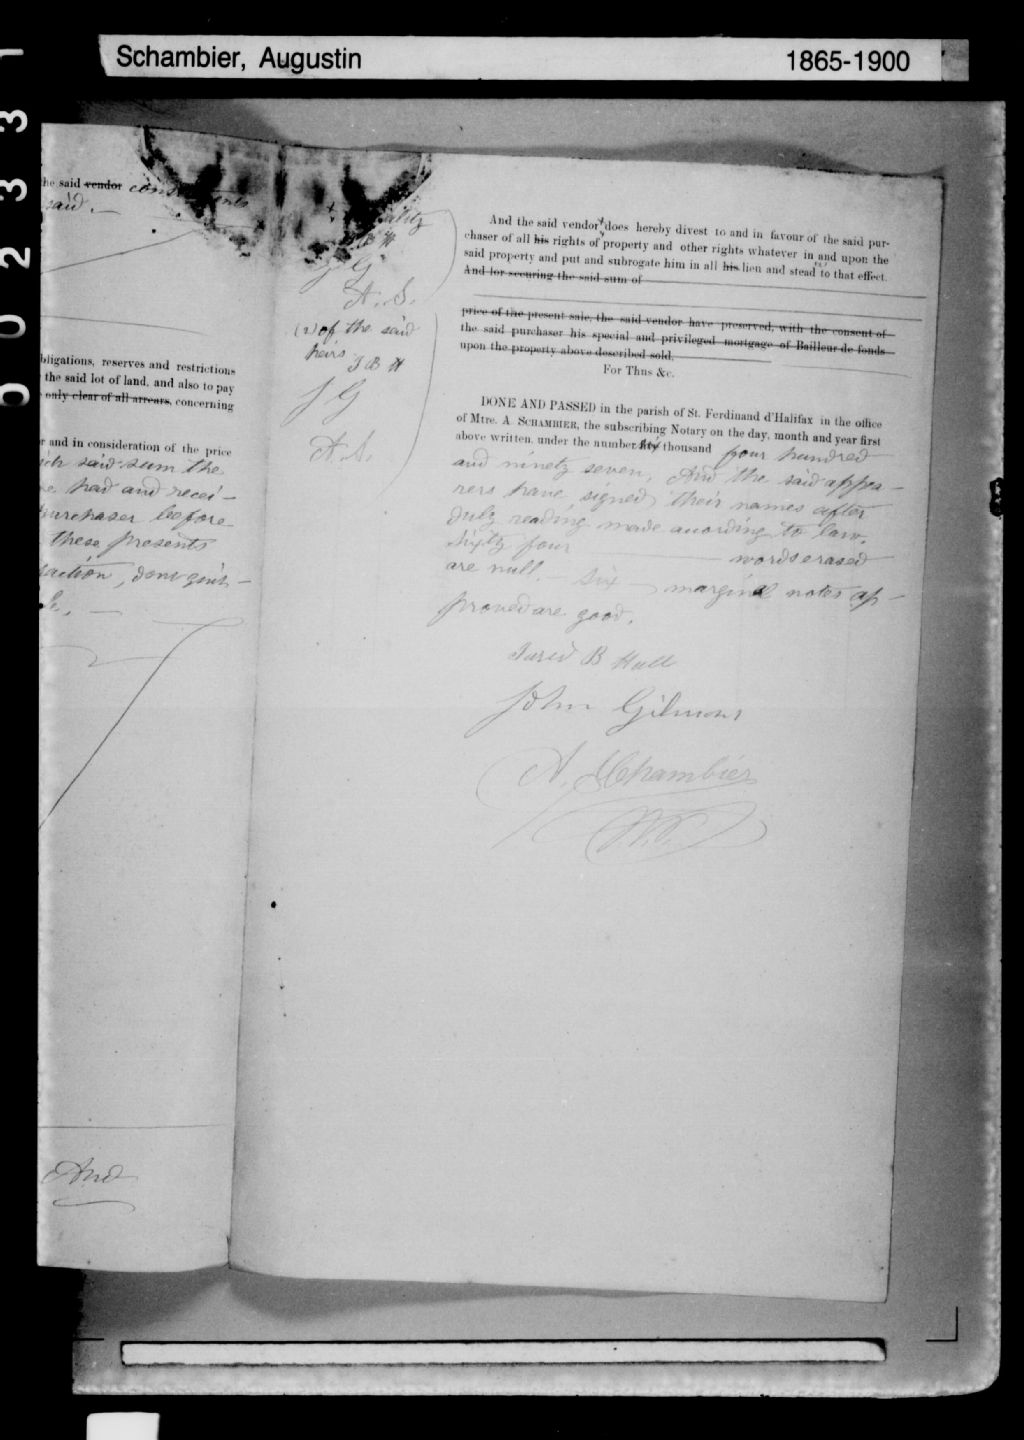 Schambier, Augustin 1865-1900
0 0 2 3 3 1
he said vendor
said. —
bligations, reserves and restrictions
the said lot of land, and also to pay
only clear of all arrears, concerning
r and in consideration of the price
ich said sum the
e had and recei-
urchaser before
these presents
action, dont quit-
—
And
J G
A. S.
(2) of the said
heirs
J B H
J G
A. S.
And the said vendor does hereby divest to and in favour of the said pur-
chaser of all his rights of property and other rights whatever in and upon the
said property and put and subrogate him in all his lien and stead to that effect.
And for securing the said sum of
price of the present sale, the said vendor have preserved, with the consent of
the said purchaser his special and privileged mortgage of Bailleur de fonds
upon the property above described sold.
For Thus &c.
DONE AND PASSED in the parish of St. Ferdinand d'Halifax in the office
of Mtre. A. SCHAMBIER, the subscribing Notary on the day, month and year first
above written, under the number six thousand four hundred
and ninety seven, And the said appea-
rers have signed their names after
duly reading made acording to law.
Sixty four — words erased
are null. — Six — marginal notes ap-
proved are good.
Jared B Hall
John Gilmour
A. Schambier
N.P.